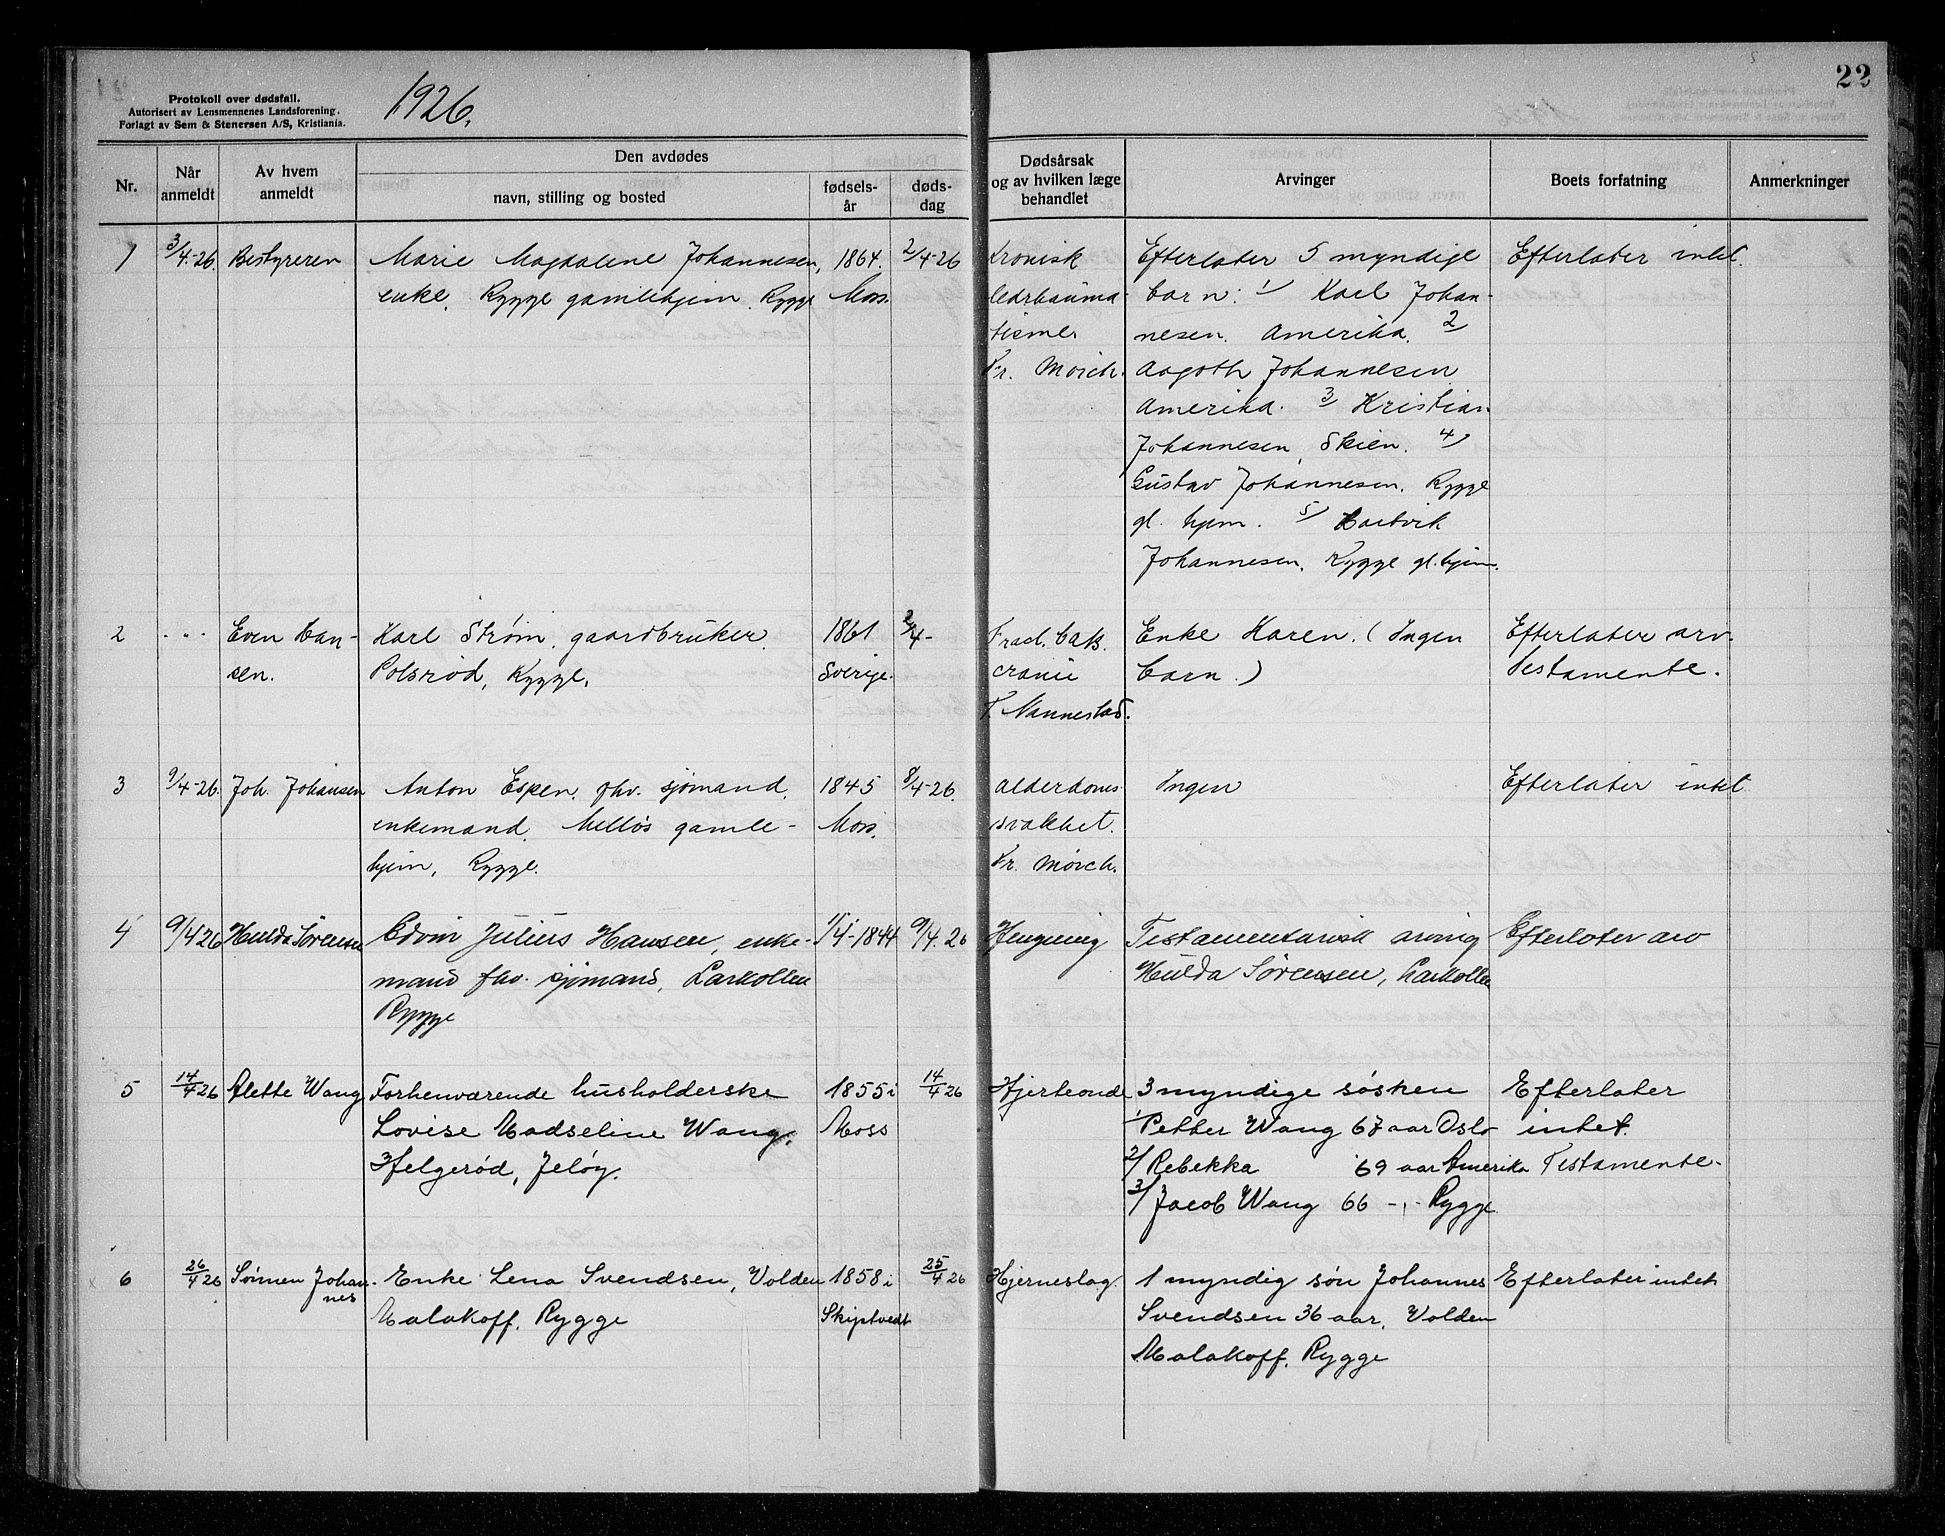 Protokoll over dødsfall.
Autorisert av Lensmennenes Landsforening.
Forlagt av Sem & Stenersen A/S, Kristiania.
1926.
22
Nr.
Når anmeldt
Av hvem anmeldt
Den avdødes
navn, stilling og bosted
fødsels-år
døds-dag
Dødsårsak og av hvilken læge behandlet
Arvinger
Boets forfatning
Anmerkninger
1
3/4-26.
Bestyreren
Marie Magdalene Johannesen,
enke. Rygge gamlehjem. Rygge
1864.
Moss.
2/4-26
Kronisk
ledrheuma-
tisme.
Fr. Mørch.
Efterlater 5 myndige
barn: 1/ Karl Johan-
nesen. Amerika. 2/
Aagoth Johannesen
Amerika. 3/ Kristian
Johannesen, Skien. 4/
Gustav Johannesen. Rygge
gl. hjem. 5/ Hartvik
Johannesen, Rygge gl. hjem.
Efterlater intet.
2
- " -
Even Han-
sen.
Karl Strøm, gaardbruker.
Polsrød, Rygge.
1861
Sverige.
2/4-
Fract. bas.
cranii
T. Nannestad.
Enke Karen. (Ingen
barn.)
Efterlater arv.
Testamente.
3
9/4-26.
Joh. Johansen
Anton Espen. fhv. sjømand,
enkemand. Melløs gamle-
hjem, Rygge.
1845
Moss.
8/4-26.
Alderdoms-
svakhet.
Fr. Mørch.
Ingen
Efterlater intet
4
9/4 26
Hulda Sørensen
Edvin Julius Hansen, enke-
mand fhv. sjømand, Larkollen
Rygge
1/4-1844
9/4. 26
Hengning
Testamentarisk arving
Hulda Sørensen, Larkollen
Efterlater arv
5
14/4 26
Alette Wang
Forhenværende husholderske
Lovise Madseline Wang.
Helgerød, Jeløy.
1855 i
Moss
14/4 26
Hjerteonde
3 myndige søsken
1/ Petter Wang 67 aar Oslo
2/ Rebekka 69 aar Amerika
3/ Jacob Wang 66 -"- Rygge
Efterlater
intet.
Testamente.
6
26/4 26
Sønnen Johan-
nes
Enke Lena Svendsen, Volden
Malakoff. Rygge
1858 i
Skiptvedt
25/4 26
Hjerneslag.
1 myndig søn Johannes
Svendsen 36 aar. Volden
Malakoff. Rygge
Efterlater intet